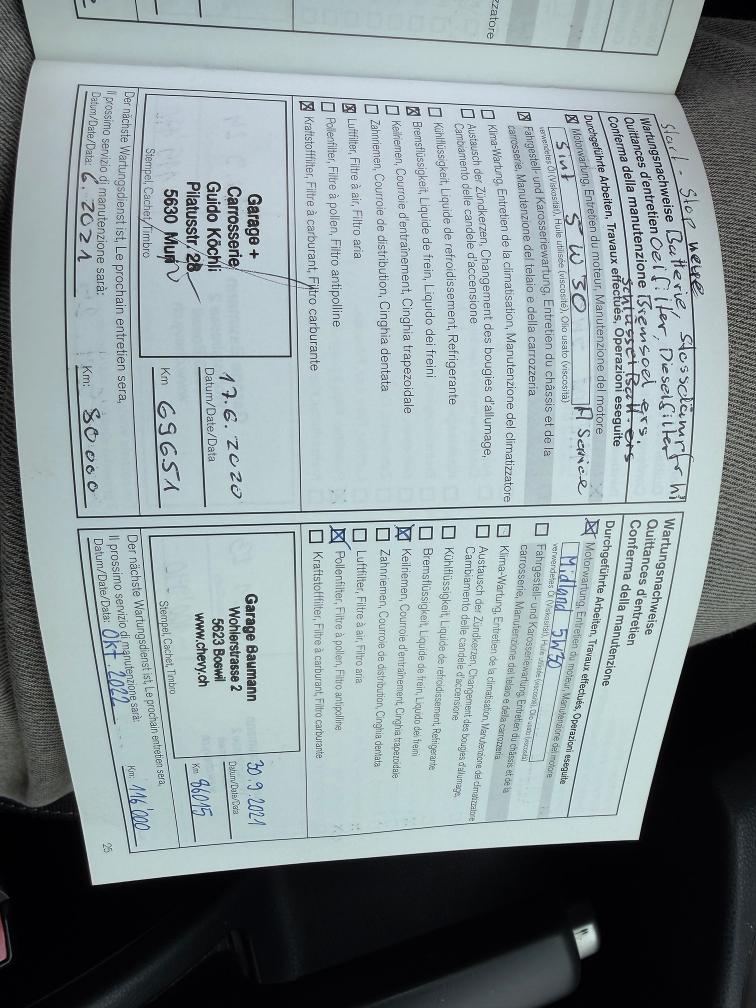 zzatore
Start-Stop neue
Batterie, Stossdämpfr hi
Wartungsnachweise
Oelfilter, Dieselfilter
Quittances d'entretien
Bremsed ers.
Conferma della manutenzione
Schlüssel Batt ers
Durchgeführte Arbeiten, Travaux effectués, Operazioni eseguite
☒ Motorwartung, Entretien du moteur, Manutenzione del motore
verwendetes Öl (Viskosität), Huile utilisés (viscosité), Olio usato (viscosità)
5W30 Service
☒ Fahrgestell- und Karosseriewartung, Entretien du châssis et de la
carrosserie, Manutenzione del telaio e della carrozzeria
☐ Klima-Wartung, Entretien de la climatisation, Manutenzione del climatizzatore
☐ Austausch der Zündkerzen, Changement des bougies d'allumage,
Cambiamento delle candele d'accensione
☐ Kühlflüssigkeit, Liquide de refroidissement, Refrigerante
☒ Bremsflüssigkeit, Liquide de frein, Liquido dei freini
☐ Keilriemen, Courroie d'entraînement, Cinghia trapezoidale
☐ Zahnriemen, Courroie de distribution, Cinghia dentata
☒ Luftfilter, Filtre à air, Filtro aria
☐ Pollenfilter, Filtre à pollen, Filtro antipolline
☒ Kraftstofffilter, Filtre à carburant, Filtro carburante
Garage +
Carrosserie
Guido Köchli
Pilatusstr. 28
5630 Muri
Stempel, Cachet, Timbro
17.6.2020
Datum/Date/Data
69651
Km
Der nächste Wartungsdienst ist, Le prochain entretien sera,
Il prossimo servizio di manutenzione sarà:
Datum/Date/Data: 6.2021 Km: 80000
Wartungsnachweise
Quittances d'entretien
Conferma della manutenzione
Durchgeführte Arbeiten, Travaux effectués, Operazioni eseguite
☒ Motorwartung, Entretien du moteur, Manutenzione del motore
verwendetes Öl (Viskosität), Huile utilisés (viscosité), Olio usato (viscosità)
Midland 5W30
☐ Fahrgestell- und Karosseriewartung, Entretien du châssis et de la
carrosserie, Manutenzione del telaio e della carrozzeria
☐ Klima-Wartung, Entretien de la climatisation, Manutenzione del climatizzatore
☐ Austausch der Zündkerzen, Changement des bougies d'allumage,
Cambiamento delle candele d'accensione
☐ Kühlflüssigkeit, Liquide de refroidissement, Refrigerante
☐ Bremsflüssigkeit, Liquide de frein, Liquido dei freini
☒ Keilriemen, Courroie d'entraînement, Cinghia trapezoidale
☐ Zahnriemen, Courroie de distribution, Cinghia dentata
☐ Luftfilter, Filtre à air, Filtro aria
☒ Pollenfilter, Filtre à pollen, Filtro antipolline
☐ Kraftstofffilter, Filtre à carburant, Filtro carburante
Garage Baumann
Wohlerstrasse 2
5623 Boswil
www.chevy.ch
Stempel, Cachet, Timbro
30.9.2021
Datum/Date/Data
Km 86015
Der nächste Wartungsdienst ist, Le prochain entretien sera,
Il prossimo servizio di manutenzione sarà:
Datum/Date/Data: Okt. 2022 Km: 116'000
25